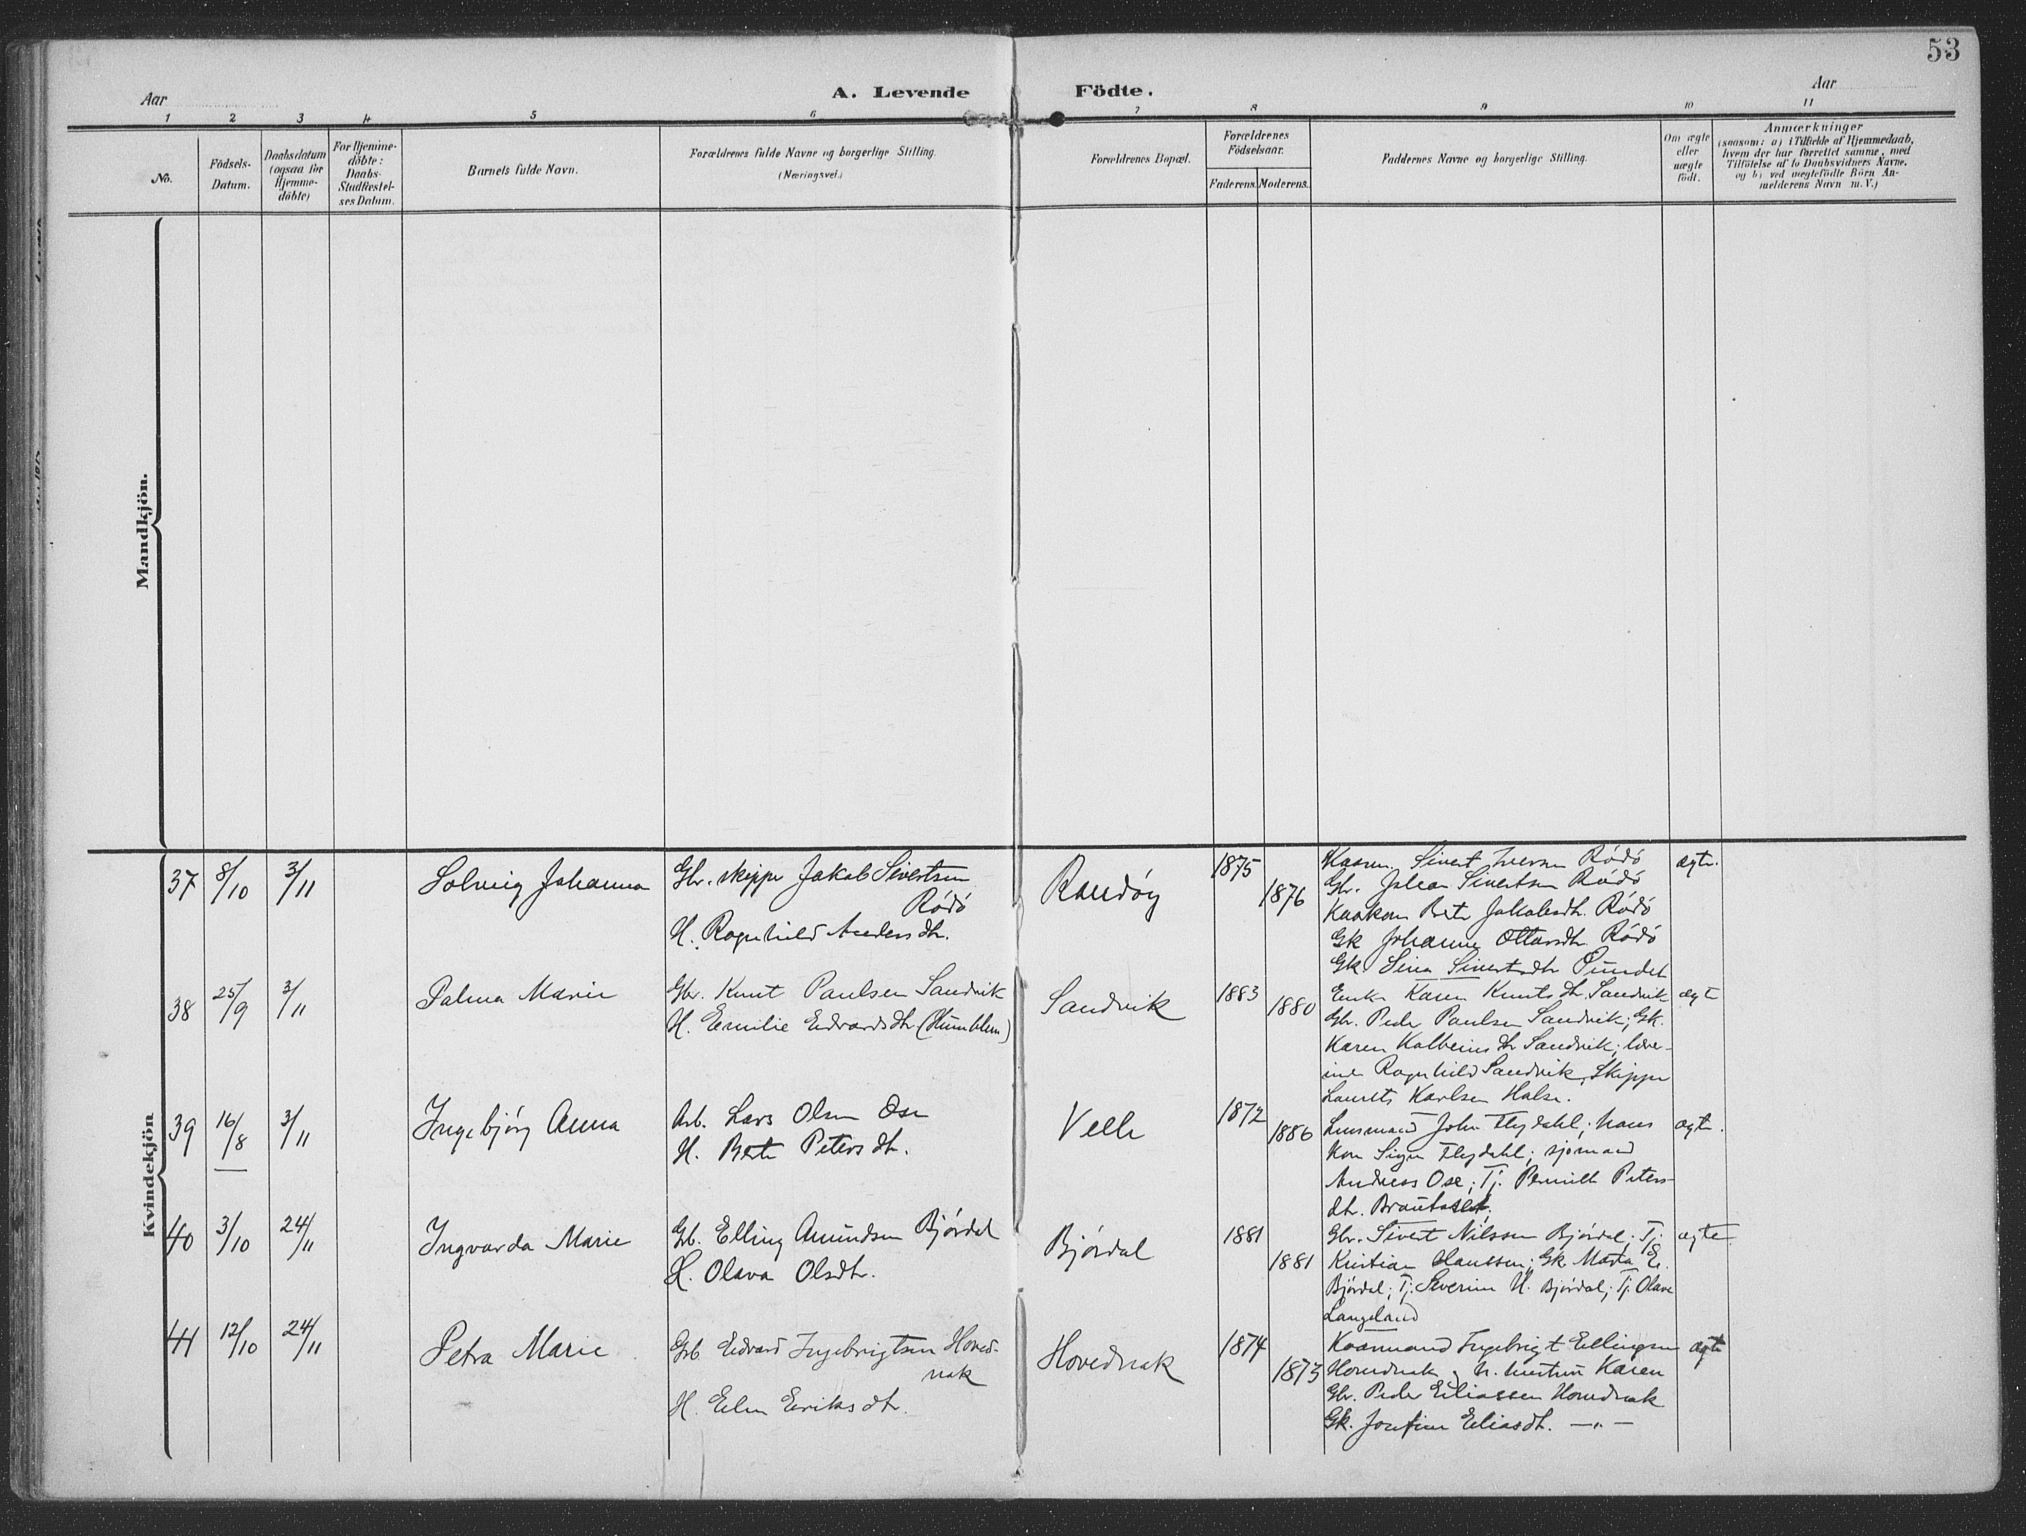 53
Aar
A. Levende Födte.
Aar
1 2 3 4 5 6 7 8 9 10 11
No.
Födsels-
Datum.
Daabsdatum
(ogsaa for
Hjemme-
döbte)
For Hjemme-
döbte:
Daabs-
Stadfæstel-
ses Datum.
Barnets fulde Navn.
Forældrenes fulde Navne og borgerlige Stilling.
(Næringsvei.)
Forældrenes Bopæl.
Forældrenes
Födselsaar.
Faderens. Moderens.
Faddernes Navne og borgerlige Stilling.
Om ægte
eller
uægte
födt.
Anmærkninger
(saasom: a) i Tilfælde af Hjemmedaab,
hvem der har forrettet samme, med
Tilföielse af to Daabsvidners Navne.
og b) ved uægtefödte Börn An-
melderens Navn m. V.)
Mandkjön.
Kvindekjön
37 8/10 3/11 Solveig Johanna
Gbr. skipper Jakob Sivertsen
Rödö
H. Ragnhild Andersdtr.
Randöy
1875
1876
Sivert Iversen Rödö
Gbr. Johan Sivertsen Rödö
Berte Jakobsdtr. Rödö
Gk Johanne Ottarsdtr Rödö
Gk Sina Sivertsdtr
ægte.
38 25/9 3/11 Palma Marie
Gbr. Knut Paulsen Sandvik
H. Emilie Edvardsdtr (Humblem)
Sandvik
1883
1880
Enke Karen Knutsdtr. Sandvik
Gbr. Peder Paulsen Sandvik; Gk.
Karen Kolbeinsdtr Sandvik; lære-
inde Ragnhild Sandvik, Skipper
Laurits Karlsen Halse.
ægt
39 16/8 3/11 Ingebjörg Anna
Arb. Lars Olsen Ose
H. Berte Petersdtr.
Velle
1872
1886
Lensmand John Flydahl; hans
Kone Signe Flydahl; sjömand
Andreas Ose; Tj. Pernille Peters-
dtr.
ægte.
40 3/10 24/11 Ingvarda Marie
Gb. Elling Amundsen Björdal
H. Olava Olsdtr.
Björdal
1881
1881
Gbr. Sivert Nilssen Björdal; Tj.
Kristian Claussen; Gk. Marta E.
Björdal; Tj. Severine H. Björdal; Tj. Olave
Langeland
ægte
41 12/10 24/11 Petra Marie
Gb. Edvard Ingebrigtsen Hoved-
nak
H. Elen Eriksdtr.
Hovednak
1874
1873
Kaarmand Ingebrigt Ellingsen
Hovednak, h. hustru Karen
Gbr. Peder Eliassen Hovednak
Gk. Josefine Eliasdtr. —"—
ægte